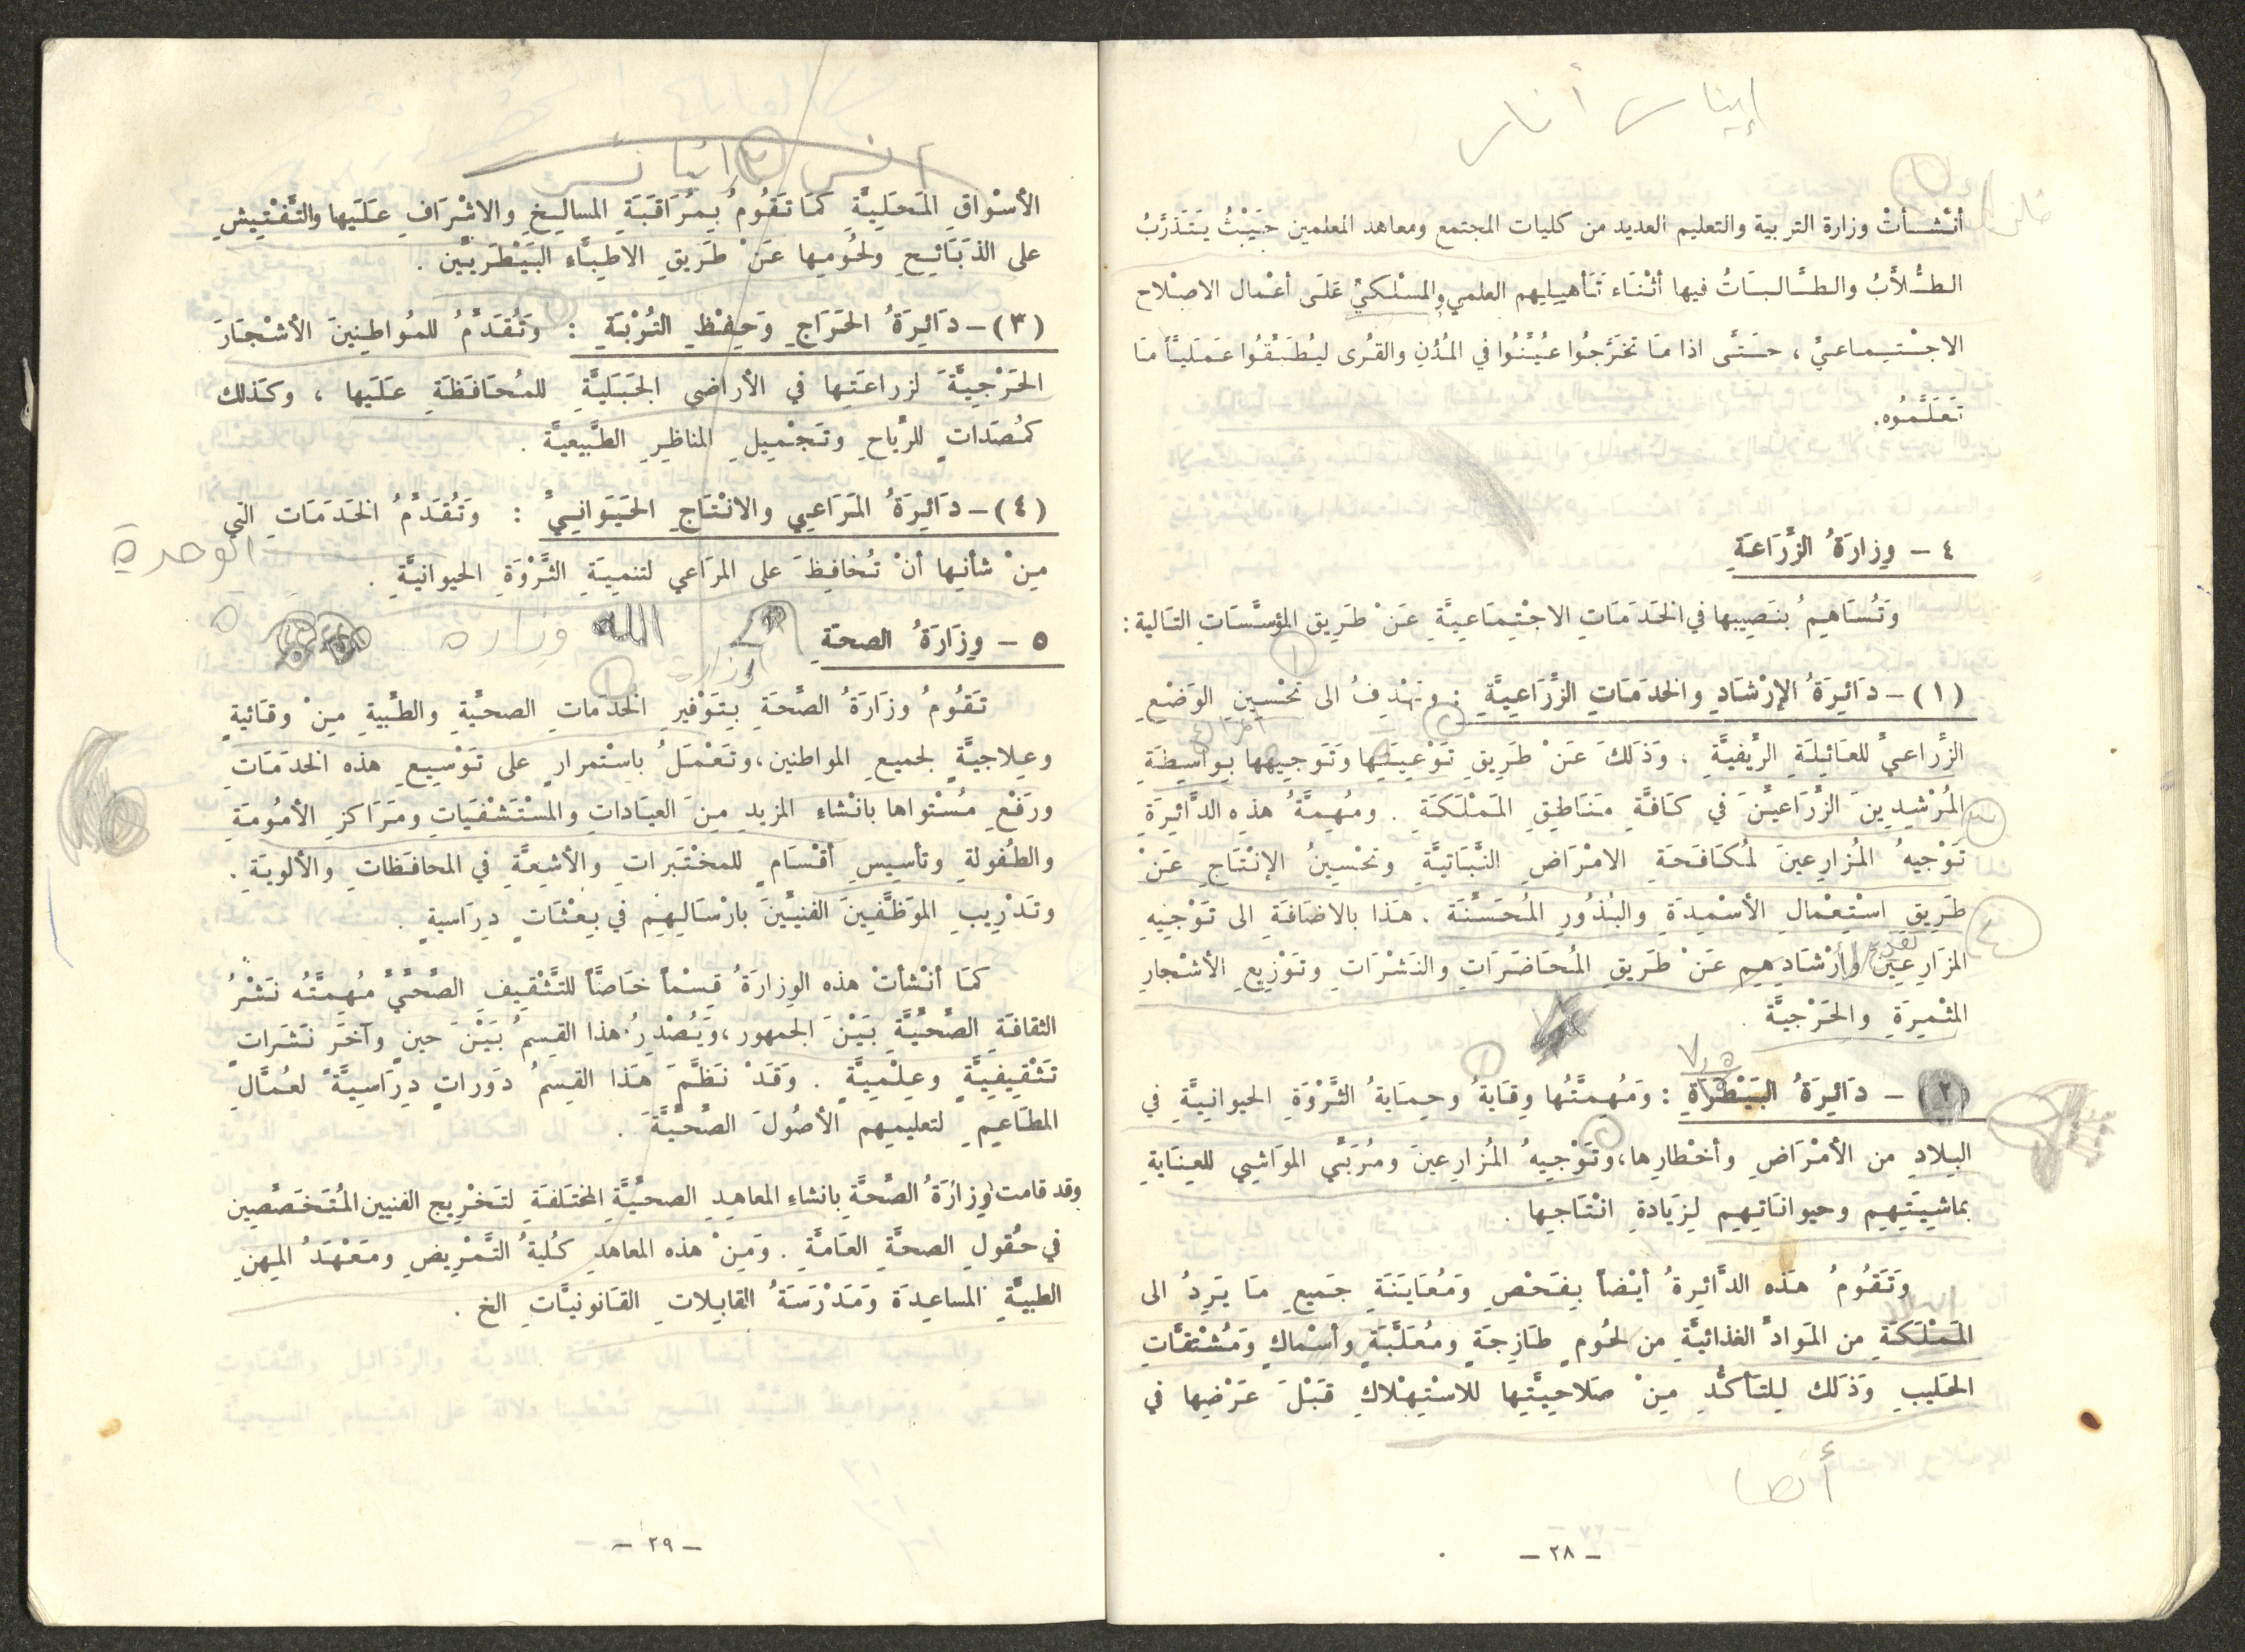 أنْشَأتْ وزارة التربية والتعليم العديد من كليات المجتمع ومعاهد المعلمين حَيْثُ يَتَدَرَّبُ
الطُّلاَّبُ والطَّالِبَاتُ فيها أثْنَاء تَأهيلِهم العلمي والمَسْلَكيِّ عَلَى أعْمال الاصلاح
الاجْتِماعيِّ ، حَتَّى اذا مَا تَخَرَّجُوا عُيِّنُوا في المُدُنِ والقُرى ليُطَبِّقُوا عَمَلِيَّاً مَا
تَعَلَّمُوه.
٤ - وِزارَةُ الزِّرَاعَةِ
وَتُسَاهِمُ بنَصِيبها في الخَدَمَاتِ الاجْتِمَاعِيَّةِ عَنْ طَرِيق المؤسَّسَاتِ التَالية :
(١) - دَائِرَةُ الإرْشَادِ والخَدَمَاتِ الزِّرَاعِيَّةِ : وتَهْدِفُ الى تَحْسِينِ الوَضْعِ
الزِّراعيِّ للعَائِلَةِ الرِّيفيَّةِ ، وَذَلكَ عَنْ طَرِيقِ تَوْعِيَتِها وَتَوجِيهها بِواسِطَةِ
المُرْشِدِينَ الزِّرَاعيِّنَ في كَافَّةِ مَنَاطِقِ المَمْلَكَةِ . ومُهِمَّةُ هذِه الدَّائِرَةِ
تَوْجيهُ المُزارِعينَ لمُكَافَحَةِ الامْرَاضِ النَّبَاتيَّةِ وتَحْسِينُ الإنْتَاجِ عَنْ
طَرِيقِ اسْتِعْمالِ الأسْمِدَةِ والبُذُورِ المُحَسَّنَة . هَذا بالاضَافَةِ الى تَوْجِيهِ
المزَارِعِيَن وأرْشَادِهِم عَنْ طَريقِ المُحَاضَرَاتِ والنَشْرَاتِ وتَوْزِيعِ الأشْجارِ
المثْمِرَةِ والحَرْجيَّة .
(٢) - دَائِرَةُ البَيْطَرَةِ : وَمُهِمَّتُها وِقَايَةُ وحِمَايَةُ الثَّرْوَةِ الحيوانيَّةِ في
البِلادِ من الأمْرَاضِ وأخْطارِها، وتَوْجيهُ المُزارِعينَ ومُرَبِّي المَوَاشِي للعِنَايَةِ
بماشِيَتِهِم وحيوانَاتِهِم لِزِيَادةِ انْتَاجِها .
وَتَقُومُ هَذه الدَّائِرةُ أيْضاً بِفَحْصِ وَمُعَايَنَةِ جَميعِ مَا يَرِدُ الى
المَمْلَكَةِ من المَوَادِّ الغذائيَّةِ من لحُومٍ طَازِجَةٍ ومُعَلَّبَةٍ وأسْماكٍ وَمُشْتَقَّاتِ
الحَليبِ وَذَلك لِلتَأكُّدِ مِنْ صَلاحِيَّتِها للاسْتِهْلاكِ قَبْلَ عَرْضِها في
أنصا
- ٢٨ -
الأسْواقِ المَحَلِيَّةِ كمَا تَقُومُ بِمُرَاقَبَةِ المسالِخِ والاشْرَافِ عَلَيها والتَّفْتِيشِ
على الذبَائِحِ ولحُومِها عَنْ طَرِيقِ الاطِبَّاءِ البَيْطَريِّين .
(٣) - دَائِرَةُ الحَرَاجِ وَحِفْظِ التُّرْبَةِ : وَتُقَدِّمُ للمُواطِنِينَ الأشْجَارَ
الحَرْجِيَّةَ لزراعَتِها في الأراضي الجَبَليَّةِ للمُحَافَظَةِ عَلَيها ، وكَذلك
كمُصَدَاتٍ للرِّياحِ وتَجْمِيلِ المناظِرِ الطَّبيعيَّة .
(٤) - دَائِرَةُ المَرَاعِي والانْتَاجِ الحَيَوَانيِّ : وَتُقَدِّمُ الخَدَمَاتِ التي
الوحدة
مِنْ شأنِها أنْ تُحَافِظَ على المرَاعي لتنميَةِ الثَّرْوَةِ الحيوانيَّةِ .
٥ - وِزَارَةُ الصحَةِ
الله وزاره
وزارة
تَقُومُ وزَارَةُ الصِّحَةِ بِتَوْفيرِ الخَدَماتِ الصحيَّةِ والطِّبيةِ مِنْ وقَائيةٍ
وعِلاجيَّةٍ لجميعِ المواطنين، وتَعْمَلُ باسْتمرارٍ على تَوْسِيعِ هذه الخدمَاتِ
ورَفْعِ مُسْتواها بانْشاءِ المزيدِ مِنَ العيَاداتِ والمسْتَشْفَيَاتِ ومَرَاكزِ الأمُومَةِ
والطُفولةِ وتأسِيسِ أقْسَامٍ للمخْتَبَراتِ والأشِعَّةِ في المحافَظاتِ والألوِيَةِ .
وتَدْرِيبِ الموَظَّفِينَ الفنيِّينَ بارْسَالِهِم في بِعْثَاتٍ دِرَاسيةٍ .
كمَا أنْشأتْ هذه الوِزارَةُ قِسْماً خَاصَّاً للتَّثْقِيفِ الصِّحِّيِّ مُهِمَّتُه نَشْرُ
الثقافَةِ الصِّحِّيَّةِ بَيْنَ الجمهور، وَيُصْدِرُ هذا القِسِمُ بَيْنَ حينٍ وآخَرَ نَشَراتٍ
تَثْقِيفِيَّةٍ وعِلْمِيَّةٍ . وَقَدْ نَظَّمَ هَذا القِسمُ دَوراتٍ دِرَاسِيَّةً لعُمَّالِ
المطَاعِيمِ لتعليمِهم الأصُولَ الصِّحِّيَّةَ .
وقد قامت وِزارَةُ الصِّحَّةِ بانشاءِ المعاهِدِ الصحيَّةِ المختَلفَةِ لتَخْرِيج الفنيين المُتَخَصِّصِين
في حُقولِ الصحَّةِ العَامَّةِ . وَمَنْ هذه المعاهدِ كُليةُ التَّمْرِيضِ ومَعْهَدُ المِهنِ
الطبيَّةِ المساعِدَة وَمَدْرَسَةُ القابِلاتِ القَانونيَّاتِ الخ .
- ٢٩ -